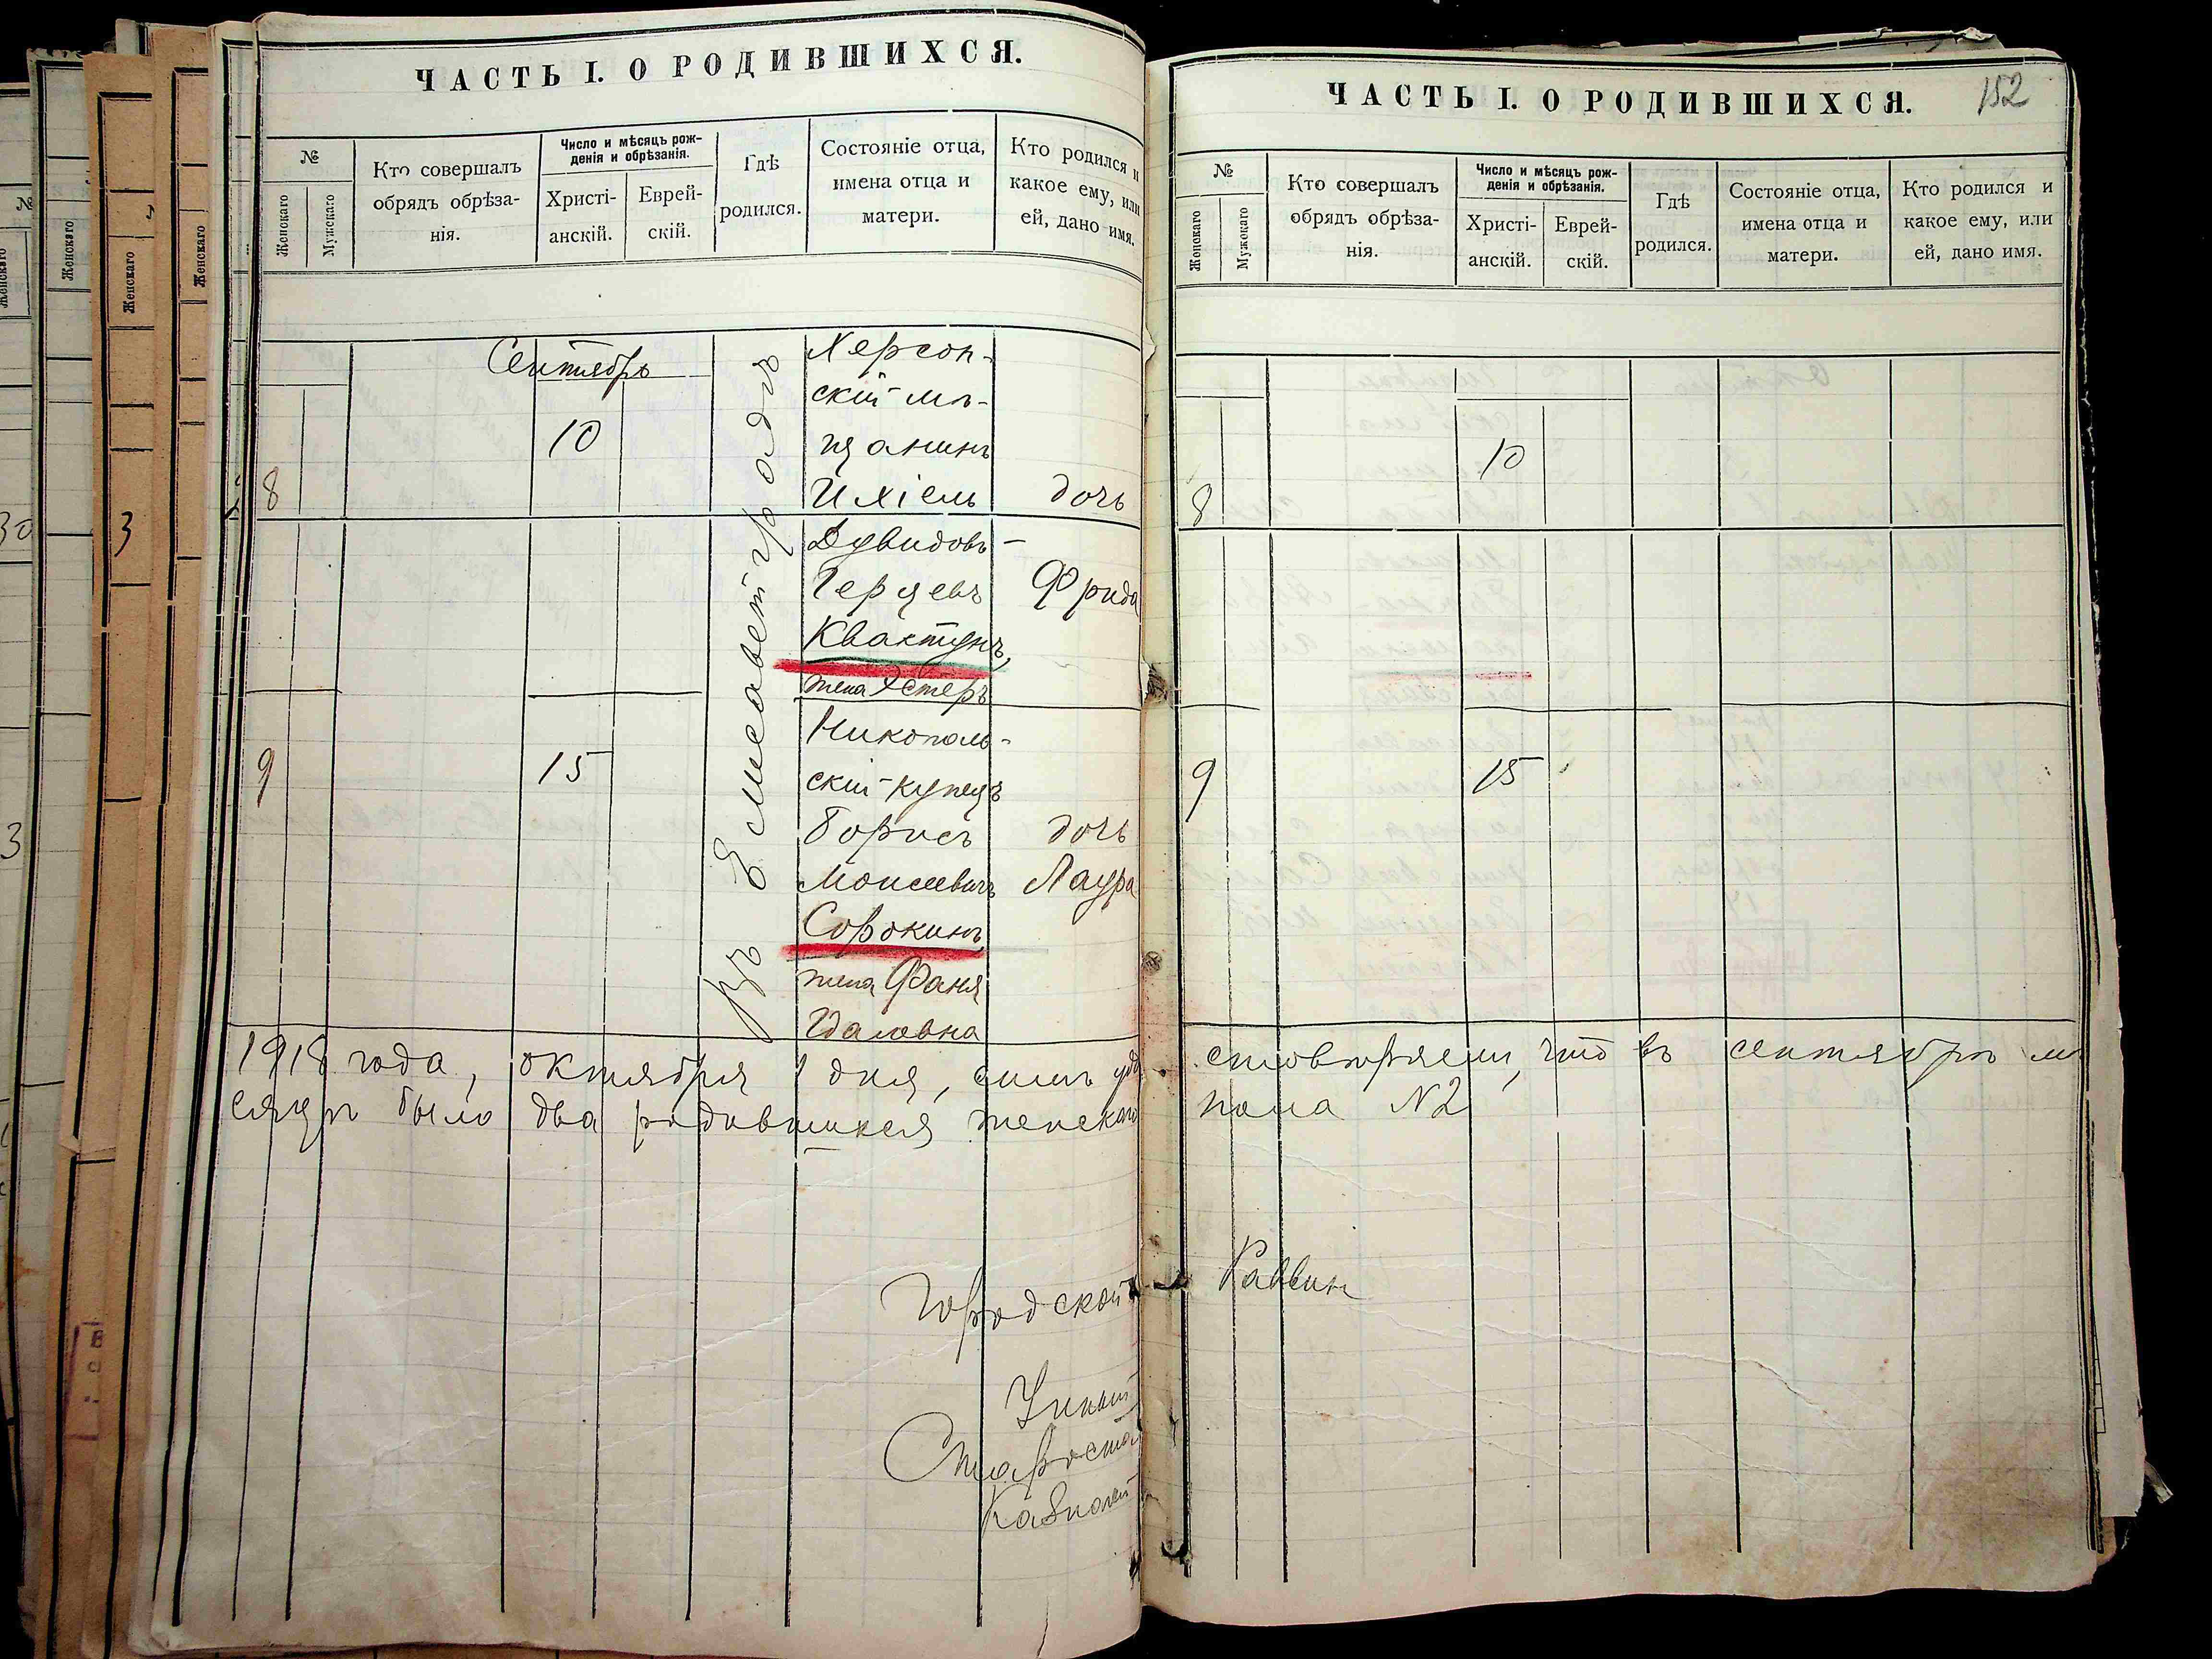 ЧАСТЬ I. О РОДИВШИХСЯ.
№
Женскаго
Мужскаго
Кто совершалъ
обрядъ обрѣза-
нія.
Число и мѣсяцъ рож-
денія и обрѣзанія.
Христі-
анскій.
Еврей-
скій.
Гдѣ
родился.
Состояніе отца,
имена отца и
матери.
Кто родился и
какое ему, или
ей, дано имя.
Сентябрь
8
10
въ Елисаветградѣ
Херсон-
скій мѣ-
щанинъ
Ихіель
Дувидовъ-
Герцевъ
Квактунъ,
жена Эстеръ
дочь
Фрида
9
15
Никополь-
скій купецъ
Борисъ
Моисеевичъ
Сорокинъ,
жена Фаня
Гдаловна
дочь
Лаура
1918 года, октября 1 дня, симъ удо
сяцѣ было два родившихся женскаго
Городской
Староста
ЧАСТЬ I. О РОДИВШИХСЯ.
152
№
Женскаго
Мужскаго
Кто совершалъ
обрядъ обрѣза-
нія.
Число и мѣсяцъ рож-
денія и обрѣзанія.
Христі-
анскій.
Еврей-
скій.
Гдѣ
родился.
Состояніе отца,
имена отца и
матери.
Кто родился и
какое ему, или
ей, дано имя.
8
10
9
15
стовѣряемъ, что въ сентябрѣ мѣ
пола №2
Раввин